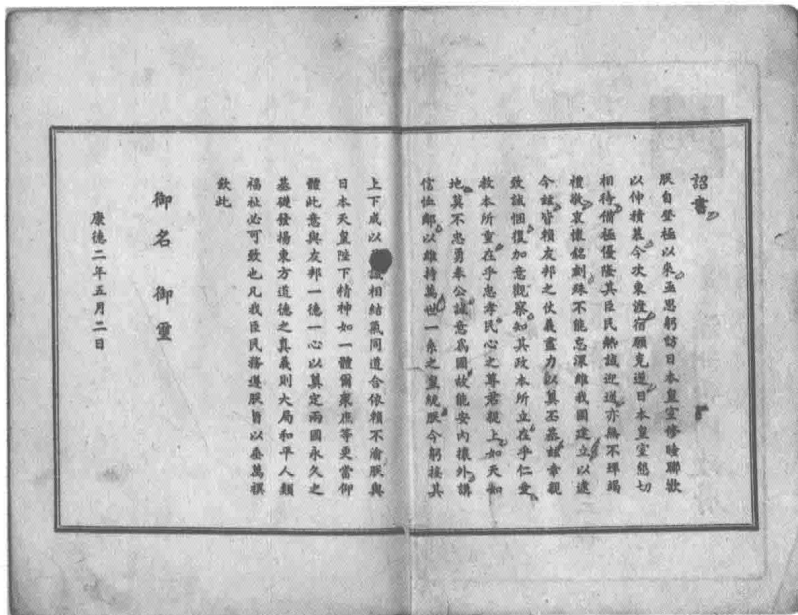 詔書
朕自登極以來亟思躬訪日本皇室修睦聯歡
以伸積慕今次東渡宿願克遂日本皇室懇切
相待備極優隆其臣民熱誠迎送亦無不殫竭
禮敬衷懷銘刻殊不能忘深維我國建立以逮
今茲皆賴友邦之仗義盡力以奠丕基茲幸親
致誠悃復加意觀察知其政本所立在乎仁愛
教本所重在乎忠孝民心之尊君親上如天如
地莫不忠勇奉公誠意爲國故能安內攘外講
信恤鄰以維持萬世一系之皇統朕今躬接其
上下咸以誠相結氣同道合依賴不渝朕與
日本天皇陛下精神如一體爾衆庶等更當仰
體此意與友邦一德一心以奠定兩國永久之
基礎發揚東方道德之真義則大局和平人類
福祉必可致也凡我臣民務遵朕旨以垂萬禩
欽此
御名 御璽
康德二年五月二日